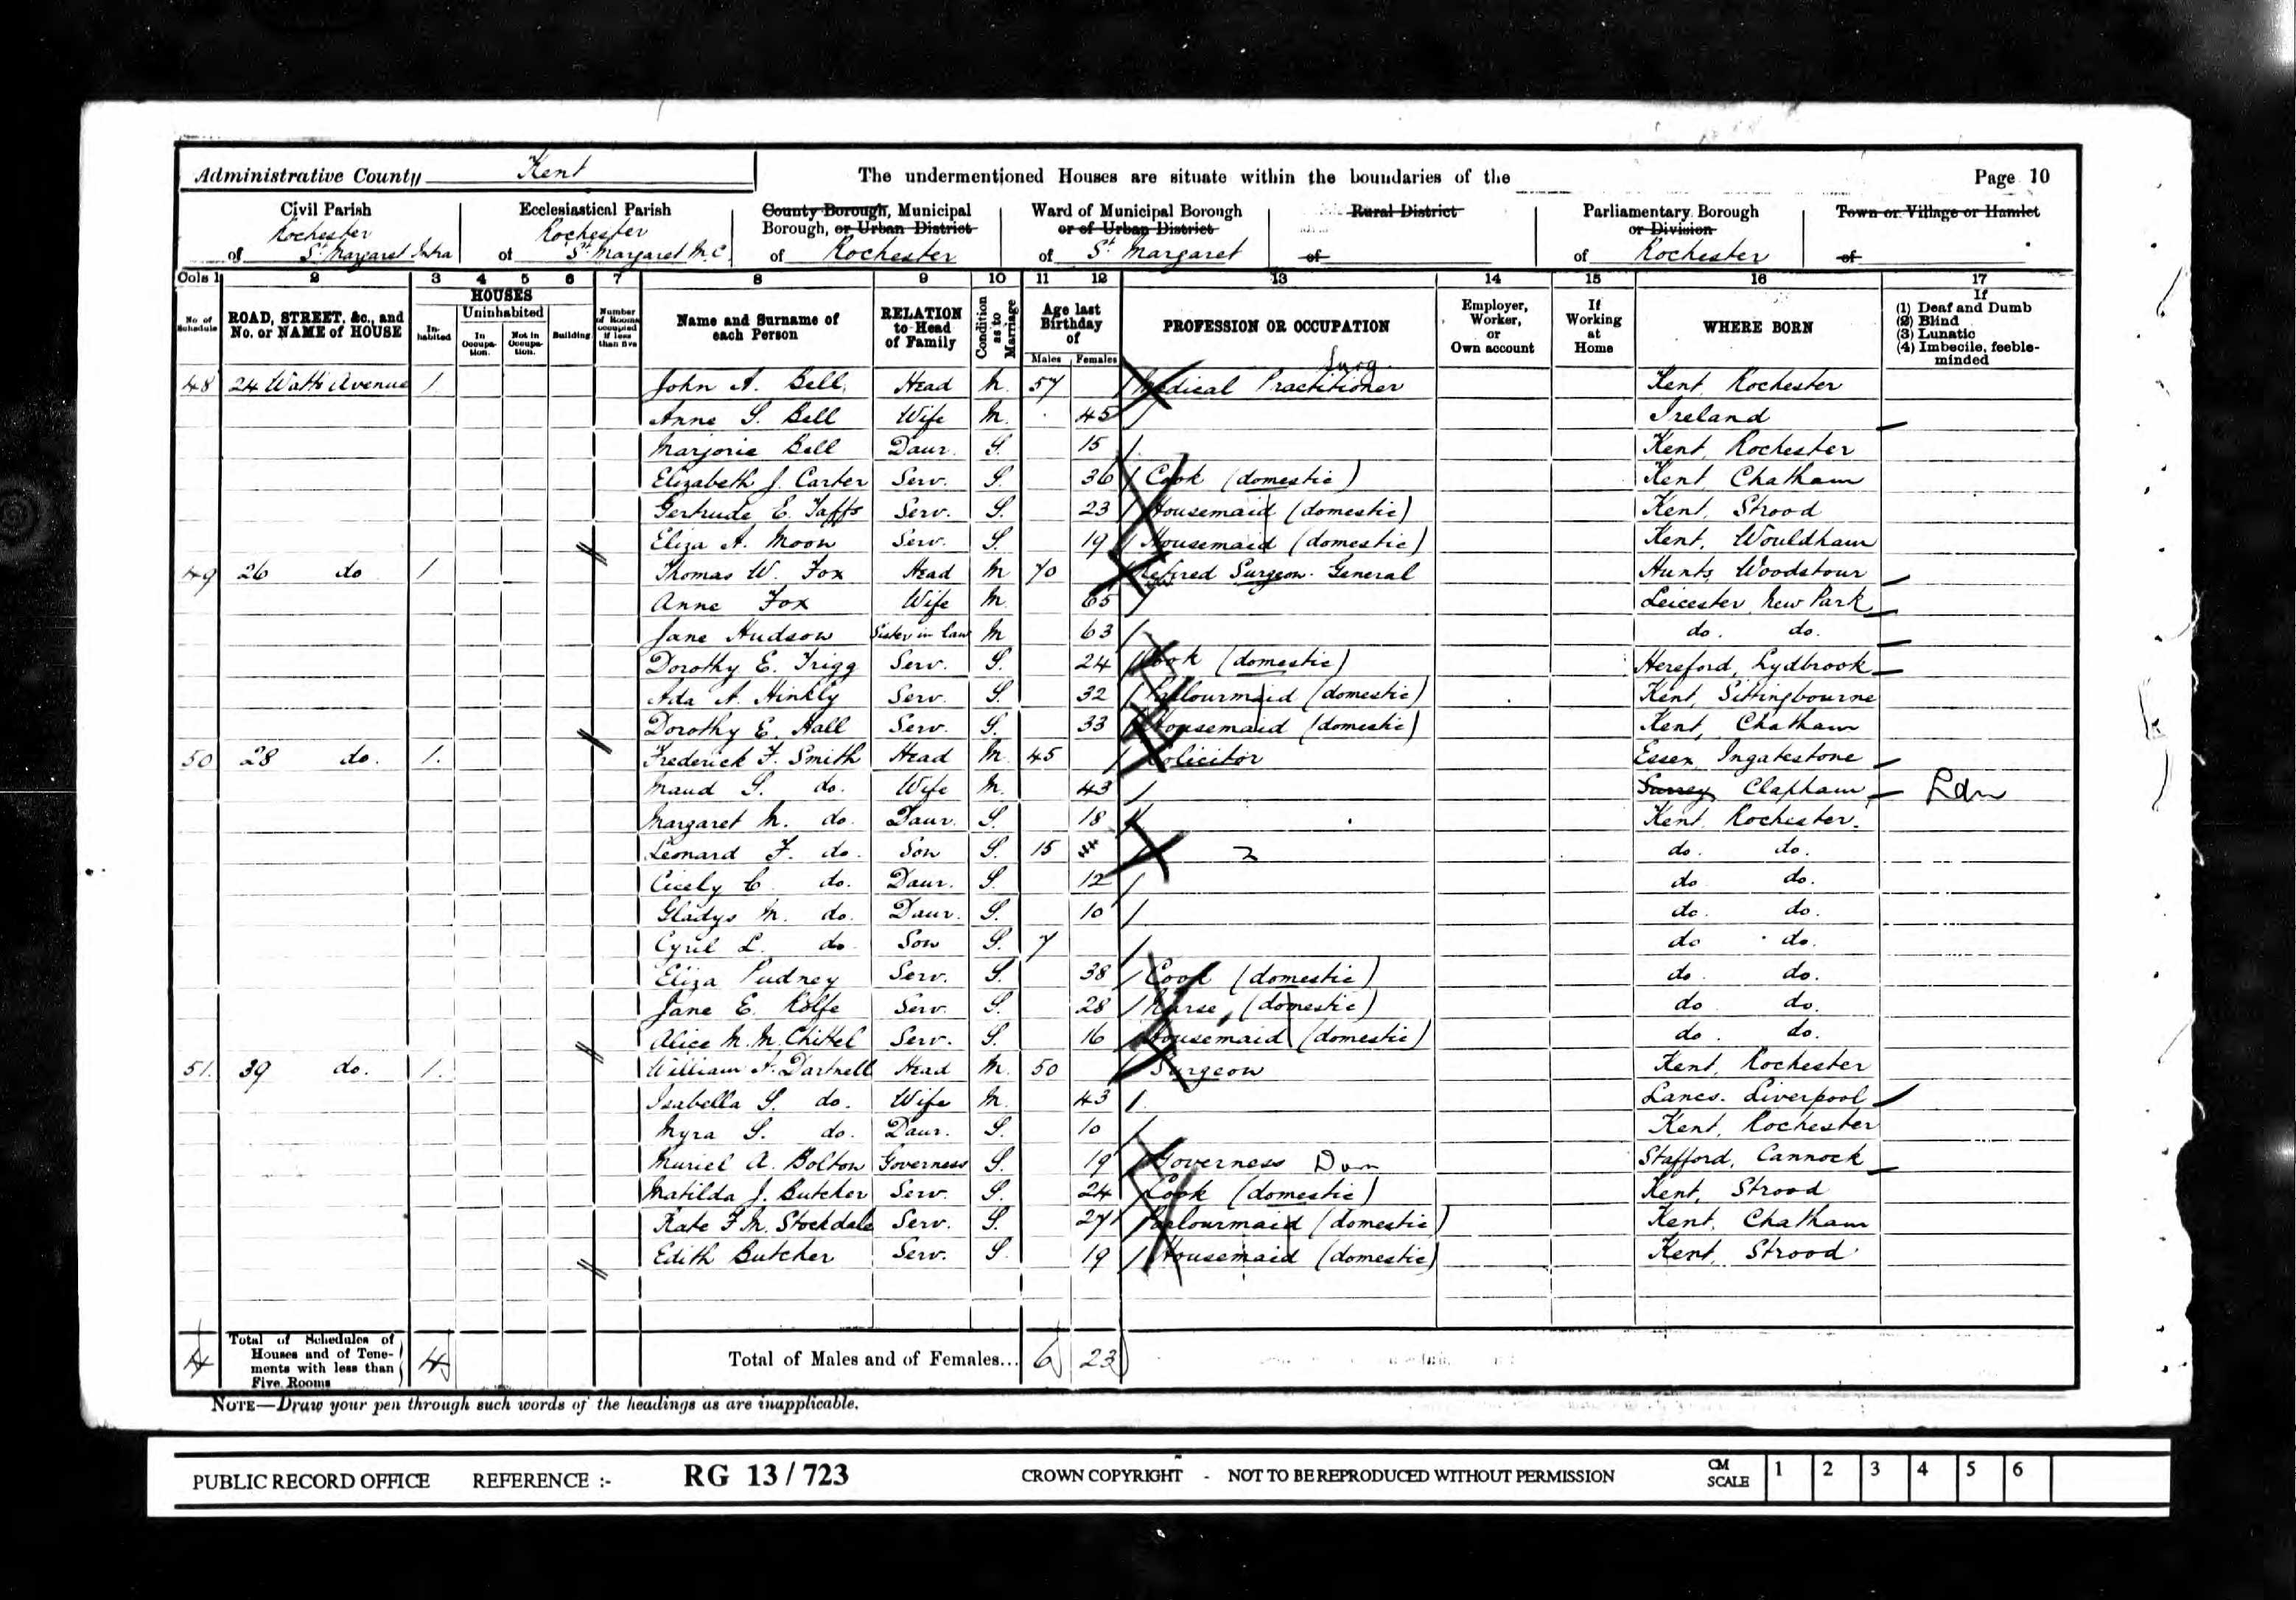 Administrative County Kent The undermentioned Houses are situate within the boundaries of the Page 10
Civil Parish Ecclesiastical Parish County Borough, Municipal Ward of Municipal Borough Rural District Parliamentary Borough Town or Village or Hamlet
Rochester Rochester Borough, or Urban District or of Urban District or Division
of St. Margaret Intra of St. Margaret M.C. of Rochester of St. Margaret of of Rochester of
Cols 1 2 3 4 5 6 7 8 9 10 11 12 13 14 15 16 17
No of Schedule ROAD, STREET, &c., and No. or NAME of HOUSE HOUSES Inhabited Uninhabited In Occupation. Not in Occupation. Building Number of Rooms occupied if less than five Name and Surname of each Person RELATION to Head of Family Condition as to Marriage Age last Birthday of Males Females PROFESSION OR OCCUPATION Employer, Worker, or Own account If Working at Home WHERE BORN If (1) Deaf and Dumb (2) Blind (3) Lunatic (4) Imbecile, feeble-minded
Surg.
48 24 Watts Avenue 1 John A. Bell Head M. 57 Medical Practitioner Kent, Rochester
Anne S. Bell Wife M. 45 Ireland
Marjorie Bell Daur. S. 15 Kent, Rochester
Elizabeth J. Carter Serv. S. 36 Cook (domestic) Kent, Chatham
Gertrude E. Taffs Serv. S. 23 Housemaid (domestic) Kent, Strood
Eliza A. Moon Serv. S. 19 Housemaid (domestic) Kent, Wouldham
49 26 do 1 Thomas W. Fox Head M 70 Retired Surgeon General Hunts, Woodstour
Anne Fox Wife M. 65 Leicester, New Park
Jane Hudson Sister in law M 63 do. do.
Dorothy E. Trigg Serv. S. 24 Cook (domestic) Hereford, Lydbrook
Ada A. Hinkly Serv. S. 32 Parlourmaid (domestic) Kent, Sittingbourne
Dorothy E. Hall Serv. S. 33 Housemaid (domestic) Kent, Chatham
50 28 do. 1. Frederick F. Smith Head M. 45 Solicitor Essex, Ingatestone
Maud S. do. Wife M. 43 Surrey Clapham Ldn
Margaret M. do. Daur. S. 18 Kent, Rochester
Leonard F. do. Son S. 15 do. do.
Cicely C. do. Daur. S. 12 do do.
Gladys M. do. Daur. S. 10 do. do.
Cyril L. do Son S. 7 do do.
Eliza Pudney Serv. S. 38 Cook (domestic) do. do.
Jane E. Rolfe Serv. S. 28 Nurse, (domestic) do do.
Alice M. M. Chittel Serv. S. 16 Housemaid (domestic) do. do.
51. 39 do. 1. William A. Dartnell Head M. 50 Surgeon Kent, Rochester
Isabella S. do. Wife M. 43 Lancs. Liverpool
Myra S. do. Daur. S. 10 Kent, Rochester
Muriel A. Bolton Governess S. 19 Governess Dom Stafford, Cannock
Matilda J. Butcher Serv. S. 24 Cook (domestic) Kent, Strood
Kate F. M. Stockdale Serv. S. 27 Parlourmaid (domestic) Kent, Chatham
Edith Butcher Serv. S. 19 Housemaid (domestic) Kent, Strood
4 Total of Schedules of Houses and of Tenements with less than Five Rooms 4 Total of Males and of Females... 6 23
NOTE—Draw your pen through such words of the headings as are inapplicable.
PUBLIC RECORD OFFICE REFERENCE :- RG 13/723 CROWN COPYRIGHT - NOT TO BE REPRODUCED WITHOUT PERMISSION CM SCALE 1 2 3 4 5 6